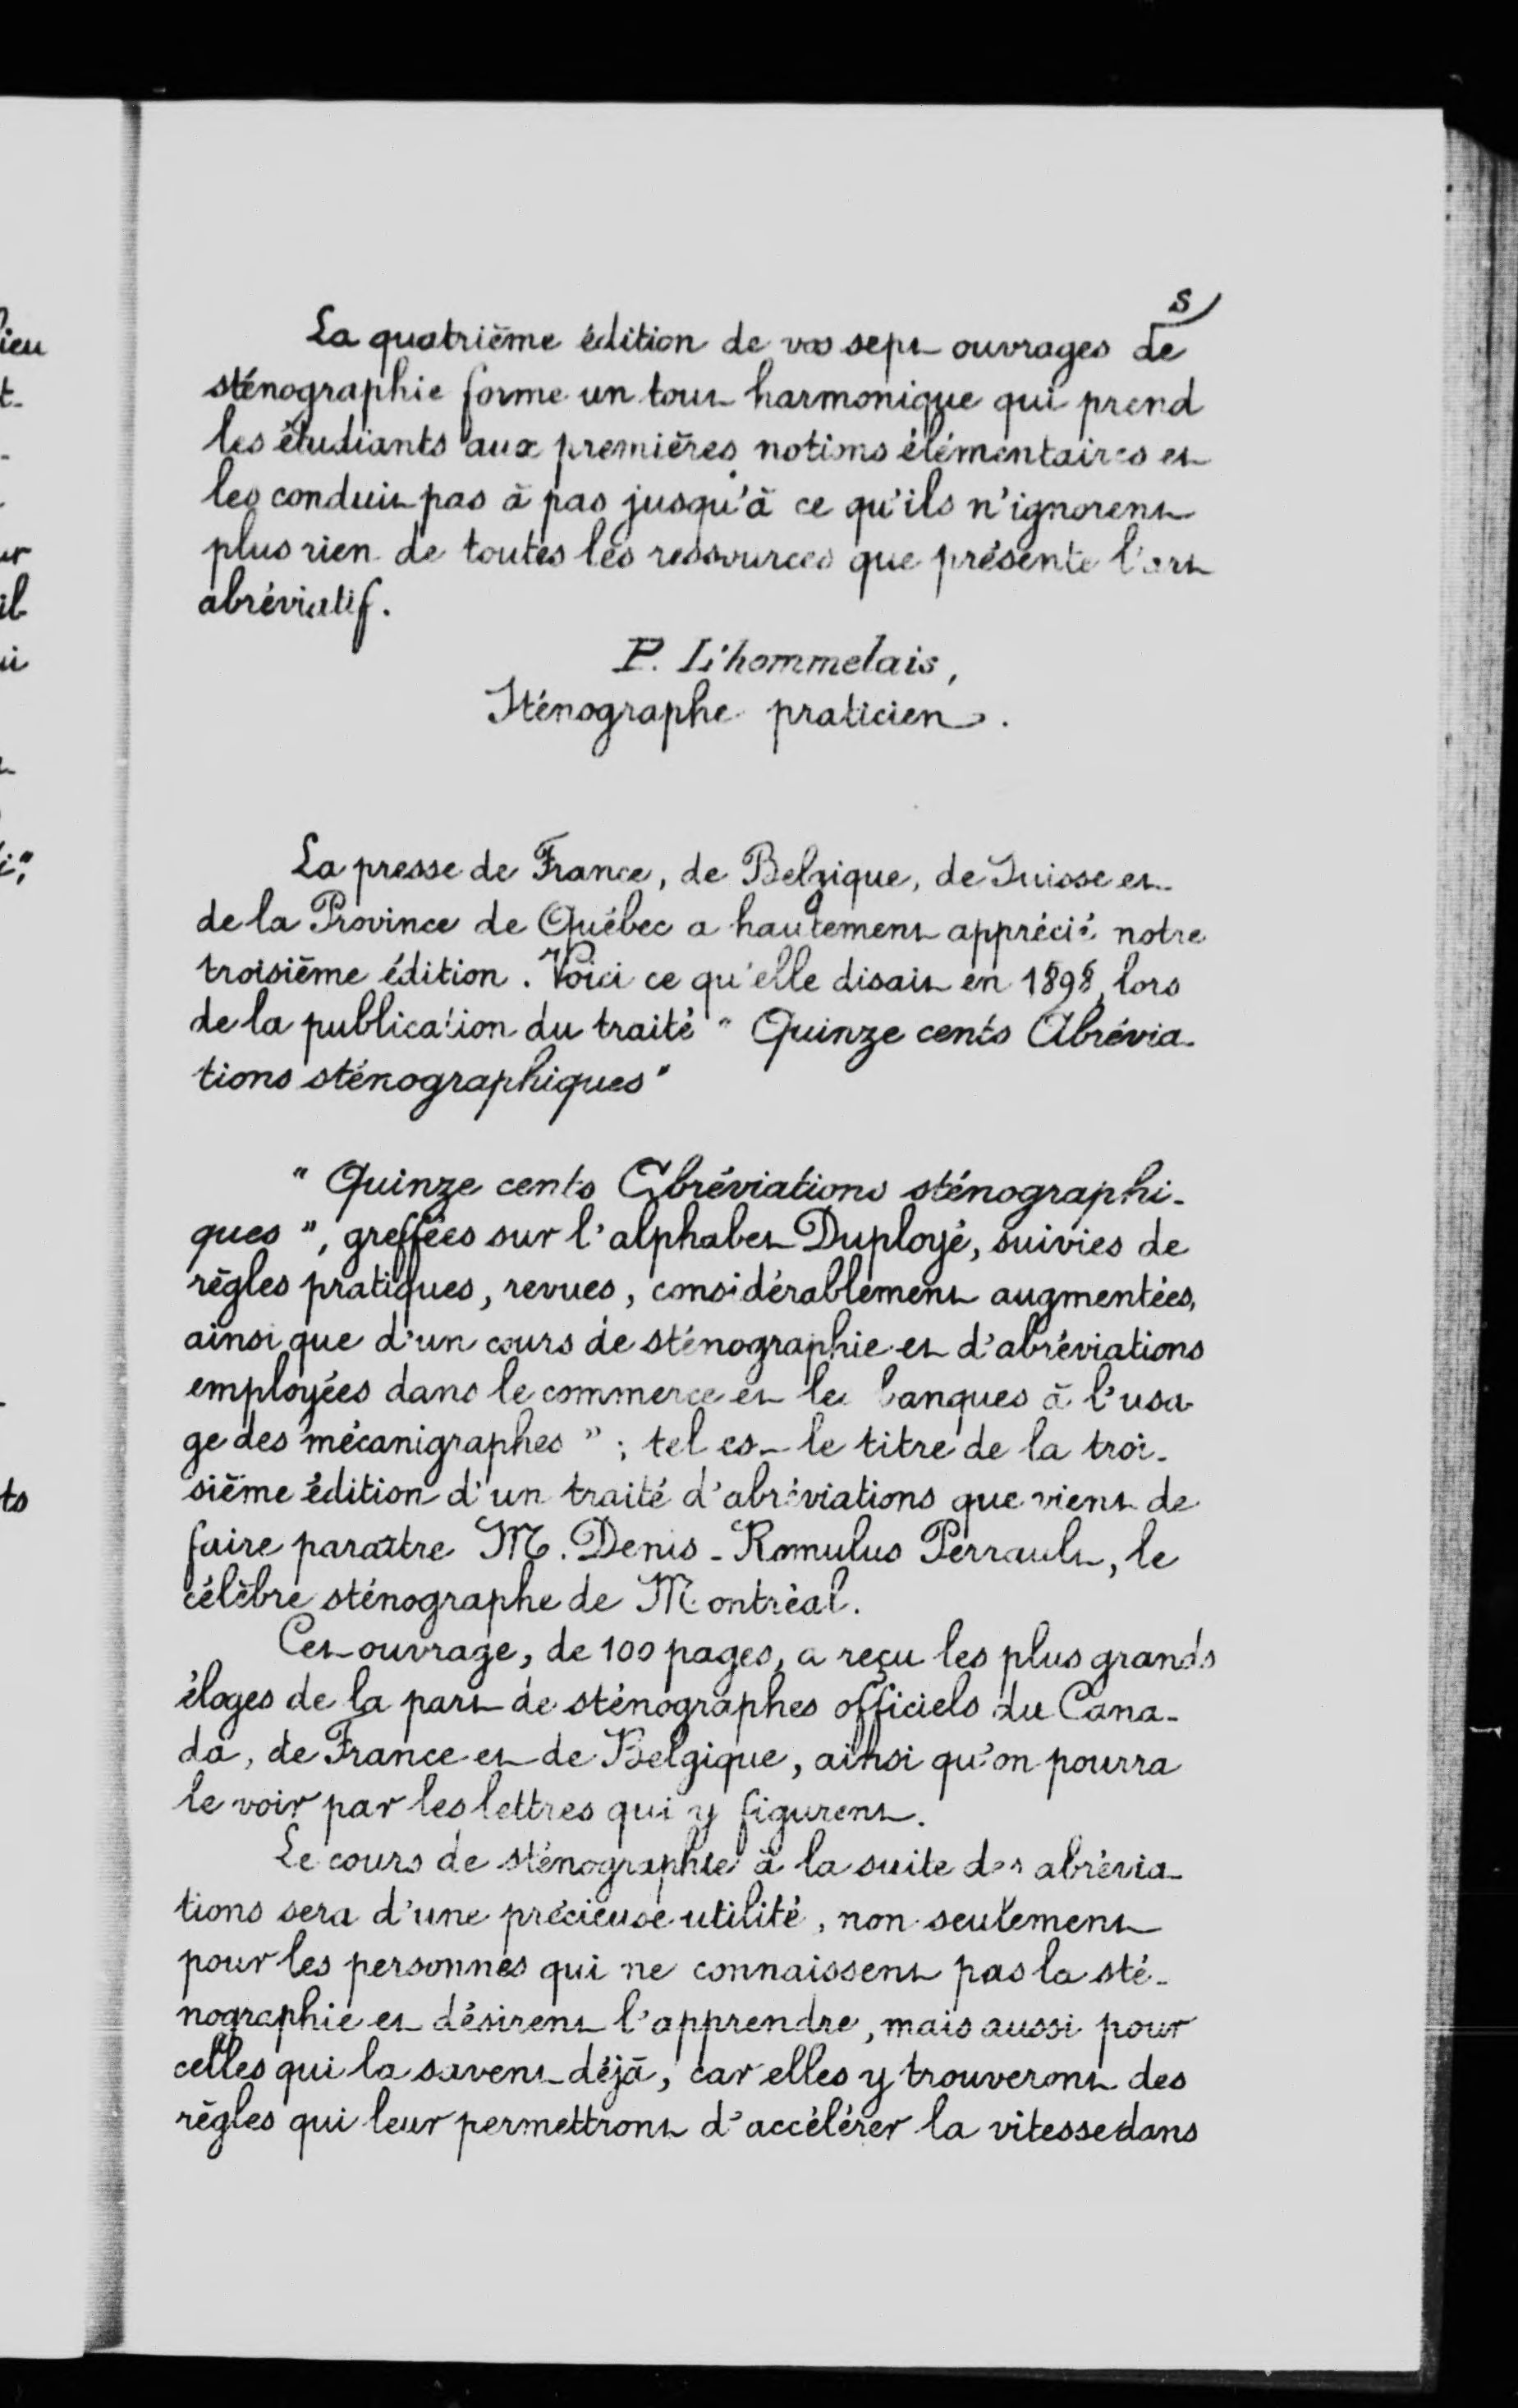 S
La quatrième édition de vos sept ouvrages de
sténographie forme un tout harmonique qui prend
les étudiants aux premières notions élémentaires et
les conduit pas à pas jusqu'à ce qu'ils n'ignorent
plus rien de toutes les ressources que présente l'art
abréviatif.
P. L'hommelais,
Sténographe praticien.
La presse de France, de Belgique, de Suisse et
de la Province de Québec a hautement apprécié notre
troisième édition. Voici ce qu'elle disait en 1898, lors
de la publication du traité "Quinze cents Abrévia-
tions sténographiques"
"Quinze cents Abréviations sténographi-
ques", greffées sur l'alphabet Duployé, suivies de
règles pratiques, revues, considérablement augmentées,
ainsi que d'un cours de sténographie et d'abréviations
employées dans le commerce et les banques à l'usa-
ge des mécanigraphes"; tel est le titre de la troi-
sième édition d'un traité d'abréviations que vient de
faire paraître M. Denis-Romulus Perrault, le
célèbre sténographe de Montréal.
Cet ouvrage, de 100 pages, a reçu les plus grands
éloges de la part de sténographes officiels du Cana-
da, de France et de Belgique, ainsi qu'on pourra
le voir par les lettres qui y figurent.
Le cours de sténographie à la suite des abrévia-
tions sera d'une précieuse utilité, non seulement
pour les personnes qui ne connaissent pas la sté-
nographie et désirent l'apprendre, mais aussi pour
celles qui la savent déjà, car elles y trouveront des
règles qui leur permettront d'accélérer la vitesse dans